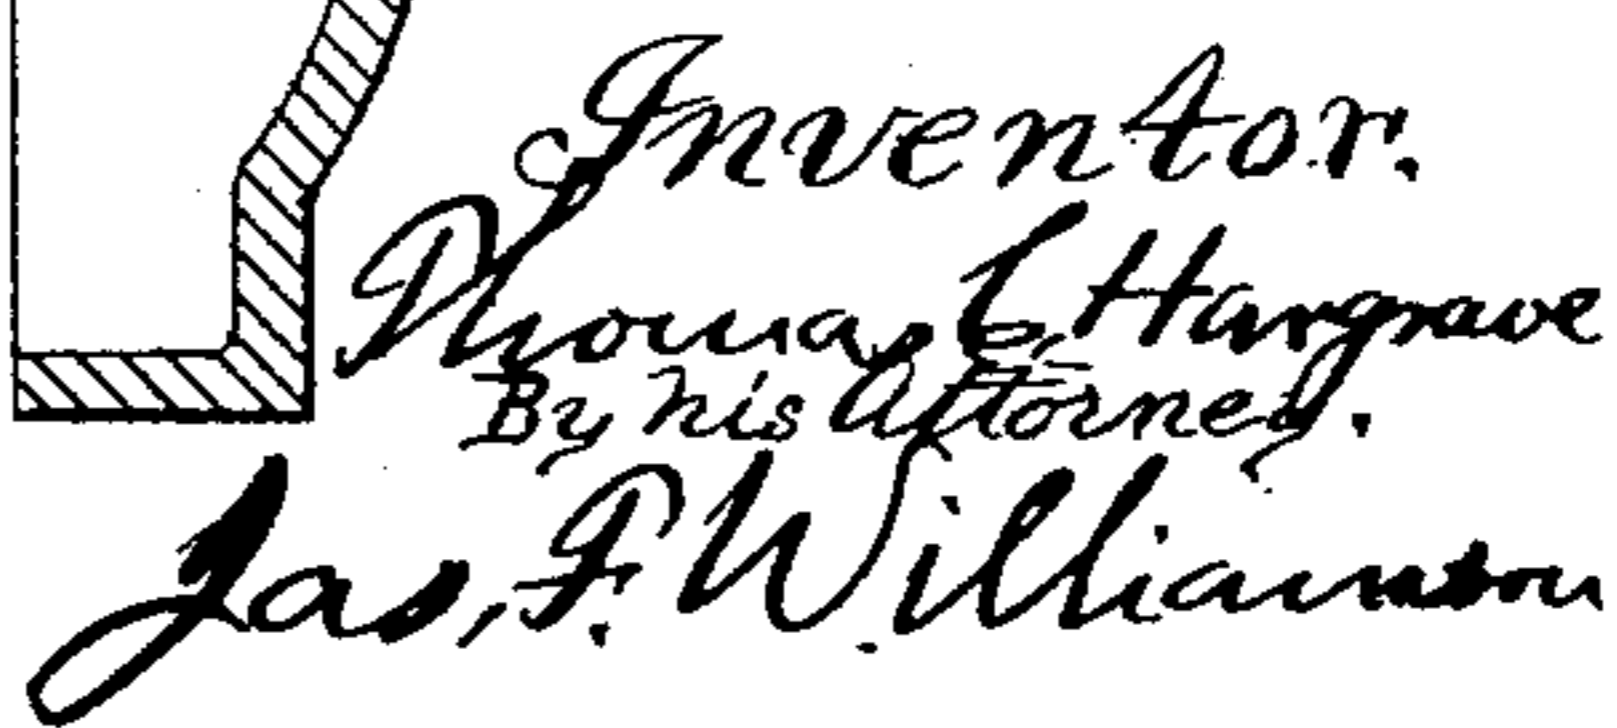 Inventor.
Thomas C. Hargrave
By his Attorney.
Jas, F. Williamson